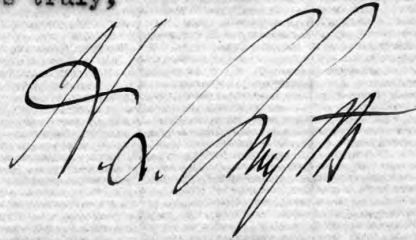 s truly,
H. L. Smyth